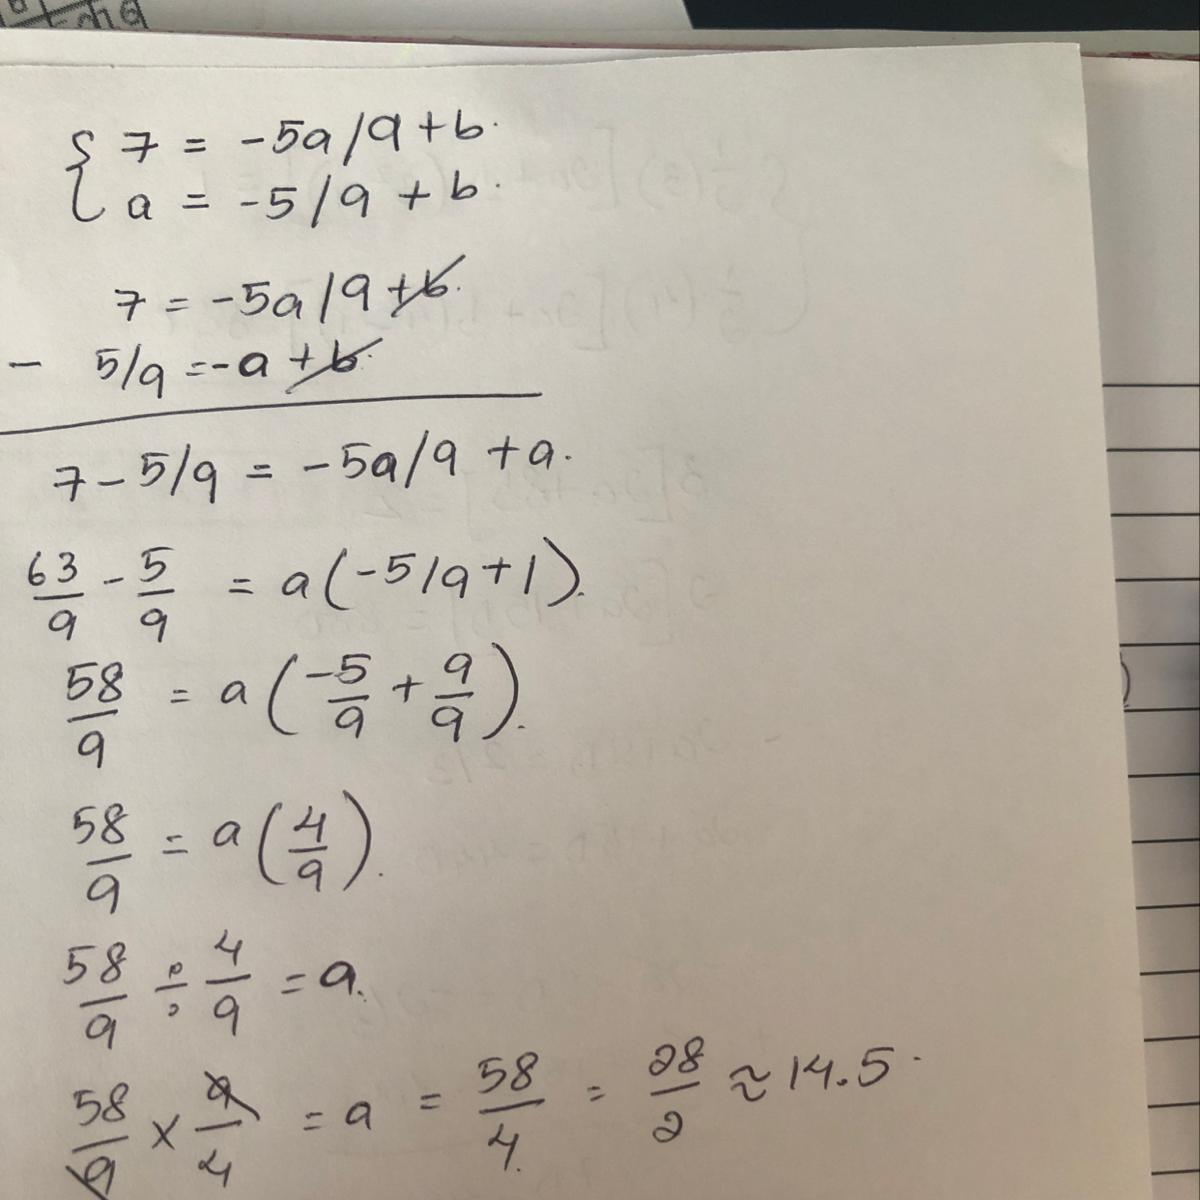 { 7 = -5a/9 + b.
a = -5/9 + b.
7 = -5a/9 + b.
- 5/9 = -a + b.
7 - 5/9 = -5a/9 + a.
63/9 - 5/9 = a(-5/9 + 1).
58/9 = a(-5/9 + 9/9).
58/9 = a(4/9).
58/9 ÷ 4/9 = a.
58/9 × 9/4 = a = 58/4. = 28/2 ≈ 14.5.